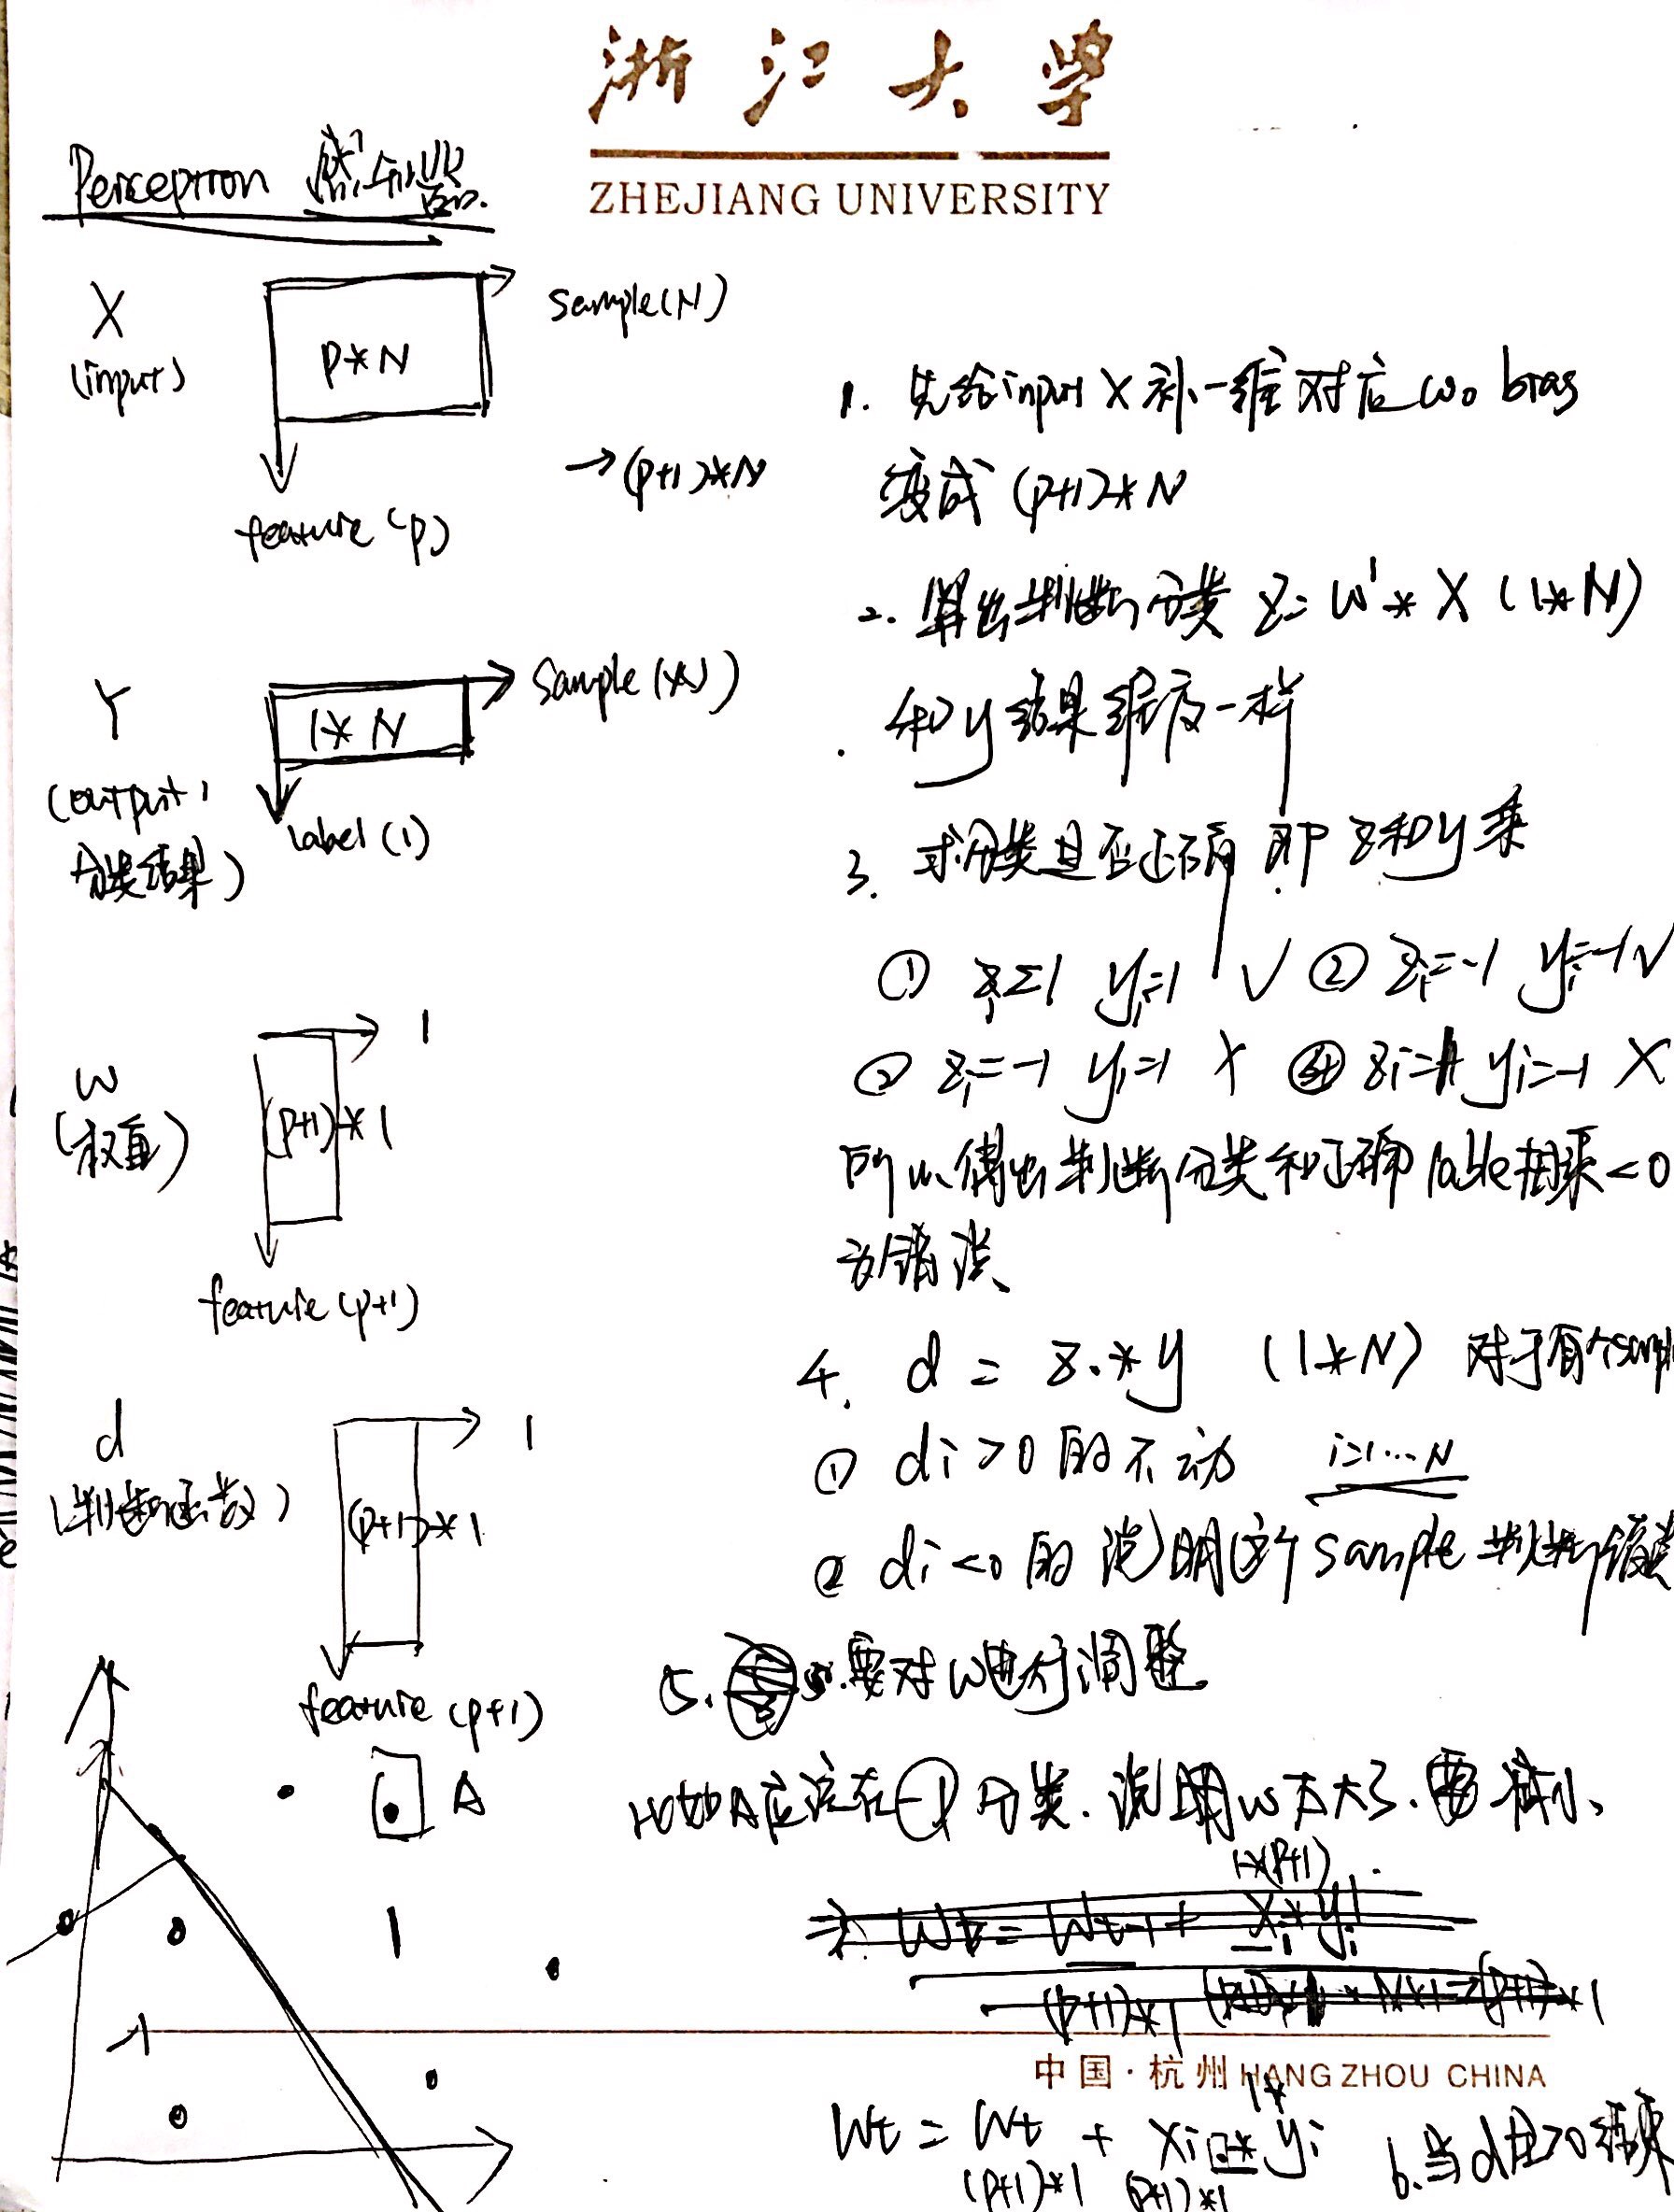 浙江大学
ZHEJIANG UNIVERSITY
Perceptron 感知器
X
(input)
P*N
sample(N)
→(P+1)*N
feature (P)
Y
(output,
分类结果)
1*N
sample (N)
label (1)
w
(权重)
1
(P+1)*1
feature (P+1)
d
(判断函数)
1
(P+1)*1
feature (P+1)
A
1
-1
1. 先给input X 补一维 对应 w0 bias
变成 (P+1)*N
2. 算出判断分类 z= w'* X (1*N)
和y结果维度一样
3. 求分类是否正确 即 z和y乘
① zi=1 yi=1 √ ② zi=-1 yi=-1 √
② zi=-1 yi=1 X ④ zi=1 yi=-1 X
所以得出判断分类和正确 lable相乘<0
为错误
4. d = z.*y (1*N) 对于每个sample
① di>0 的不动 i=1...N
② di<0 的 说明这个 sample 判断错误
5. 要对w进行调整
比如A应该在-1分类. 说明w太大了. 需减小.
1*(P+1)
Wt = Wt-1 + Xi * yi'
(P+1)*1
中国·杭州 HANG ZHOU CHINA
1*1
Wt = Wt + Xi * yi
(P+1)*1 (P+1)*1
6. 当d全>0 结束